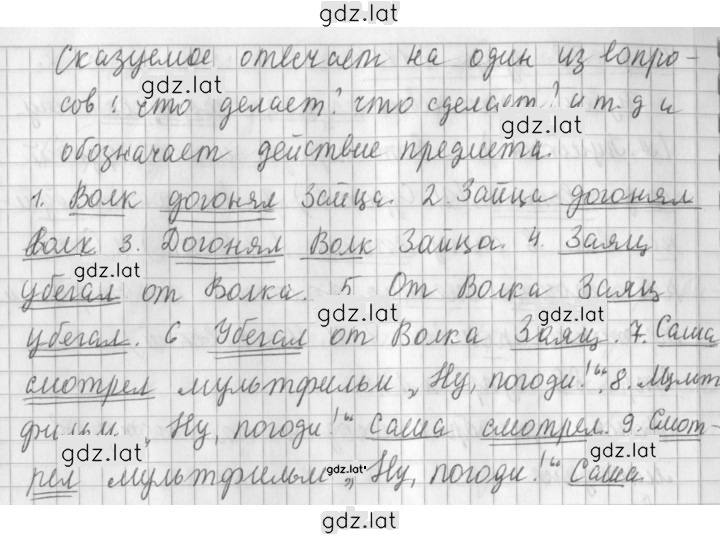 gdz.lat
Сказуемое отвечает на один из вопро-
gdz.lat
сов: что делает? что сделает? и т. д и
gdz.lat
обозначает действие предмета.
1. Волк догонял Зайца. 2. Зайца догонял
Волк 3. Догонял Волк Зайца. 4. Заяц
gdz.lat
убегал от Волка. 5 От Волка Заяц
gdz.lat gdz.lat
убегал. 6 Убегал от Волка Заяц. 7. Саша
смотрел мультфильм „Ну, погоди!“. 8. Мульт
фильм „Ну, погоди!“ Саша смотрел. 9. Смот-
gdz.lat gdz.lat
рел мультфильм „Ну, погоди!“ Саша
gdz.lat
gdz.lat